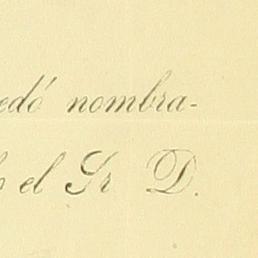 edó nombra-
el Sr D.